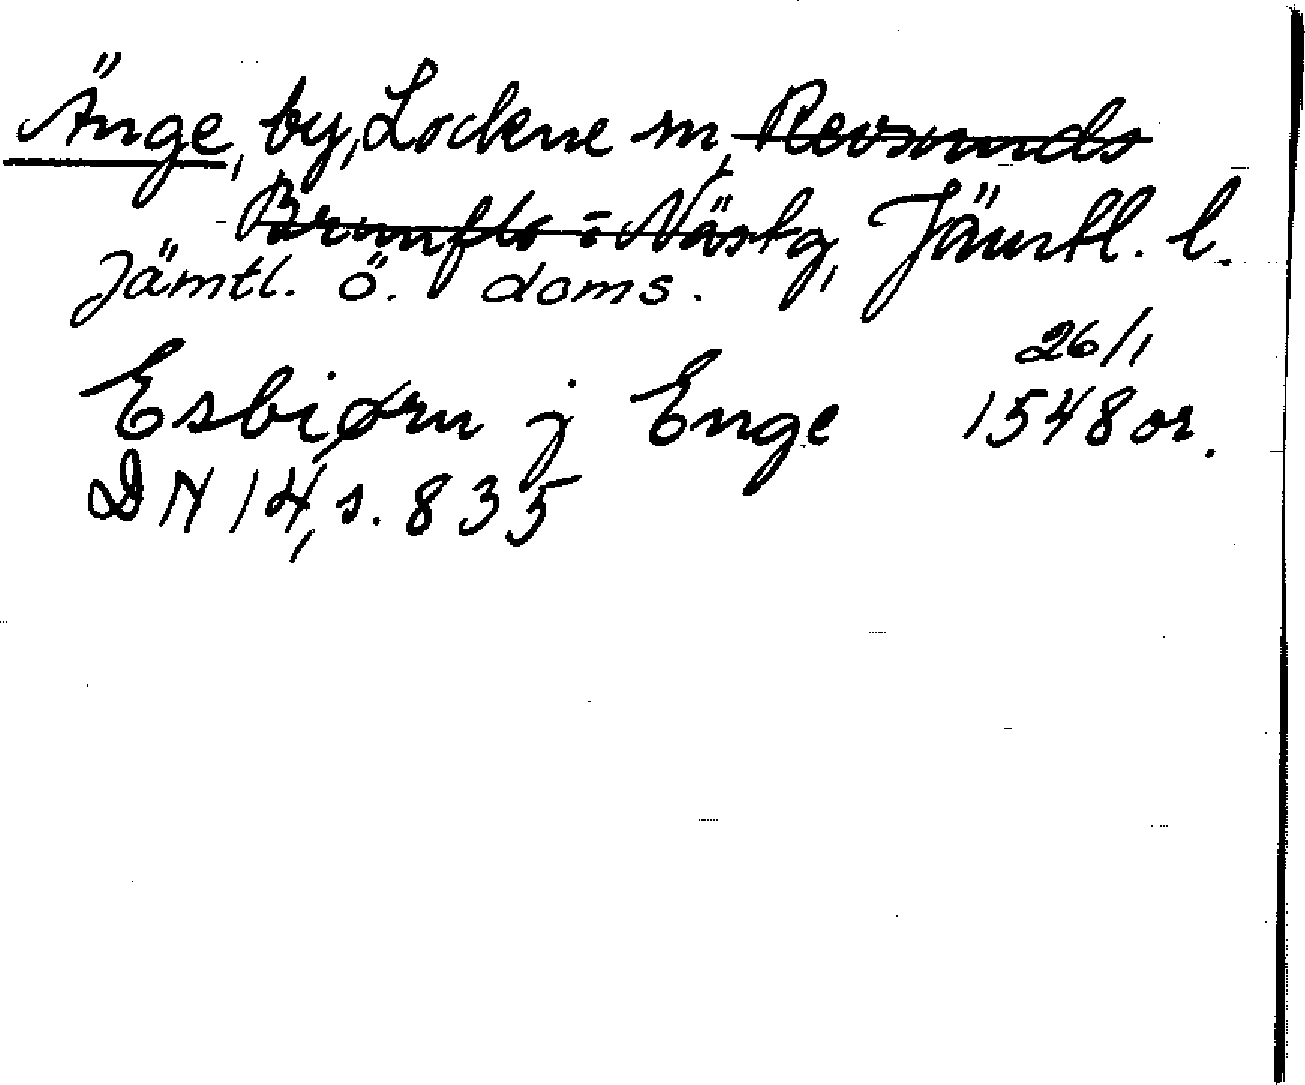 Änge, by, Lockne sn, Revsunds
Brunflo o Näs tg, Jämtl. l.
Jämtl. ö. doms.
26/1
Esbiørn j Enge 1548 or.
DN 14, s. 835